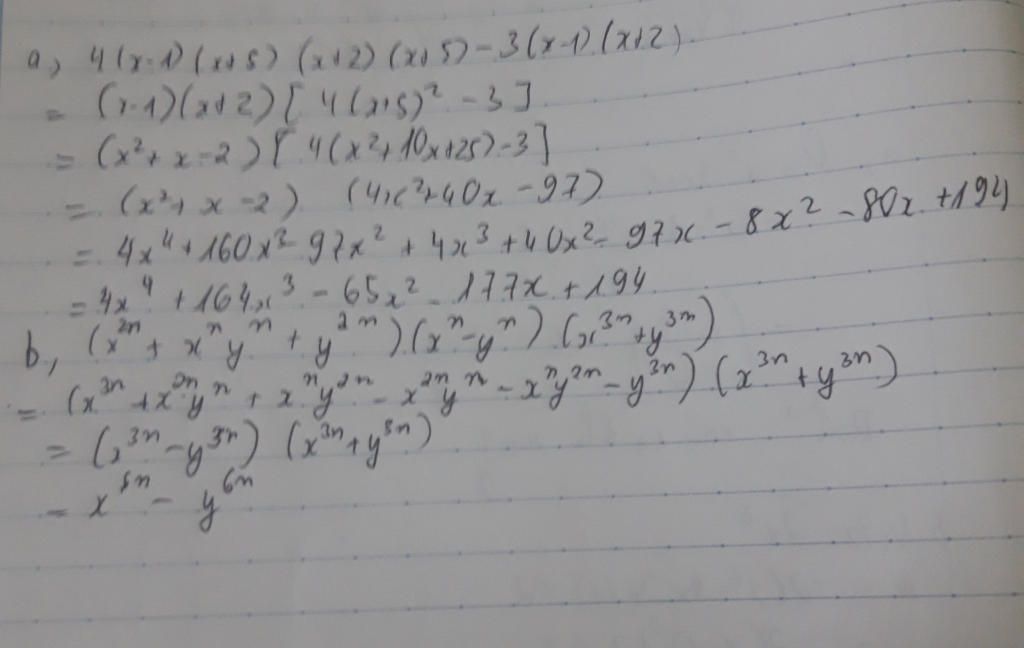 a, 4(x-1)(x+5)(x+2)(x+5)-3(x-1)(x+2)
= (x-1)(x+2)[4(x+5)²-3]
= (x²+x-2)[4(x²+10x+25)-3]
= (x²+x-2)(4x²+40x-97)
= 4x⁴+160x³-97x²+4x³+40x²-97x-8x²-80x+194
= 4x⁴+164x³-65x²-177x+194
b, (x²ⁿ+xⁿyⁿ+y²ⁿ)(xⁿ-yⁿ)(x³ⁿ+y³ⁿ)
= (x³ⁿ+x²ⁿyⁿ+xⁿy²ⁿ-x²ⁿyⁿ-xⁿy²ⁿ-y³ⁿ)(x³ⁿ+y³ⁿ)
= (x³ⁿ-y³ⁿ)(x³ⁿ+y³ⁿ)
= x⁶ⁿ-y⁶ⁿ